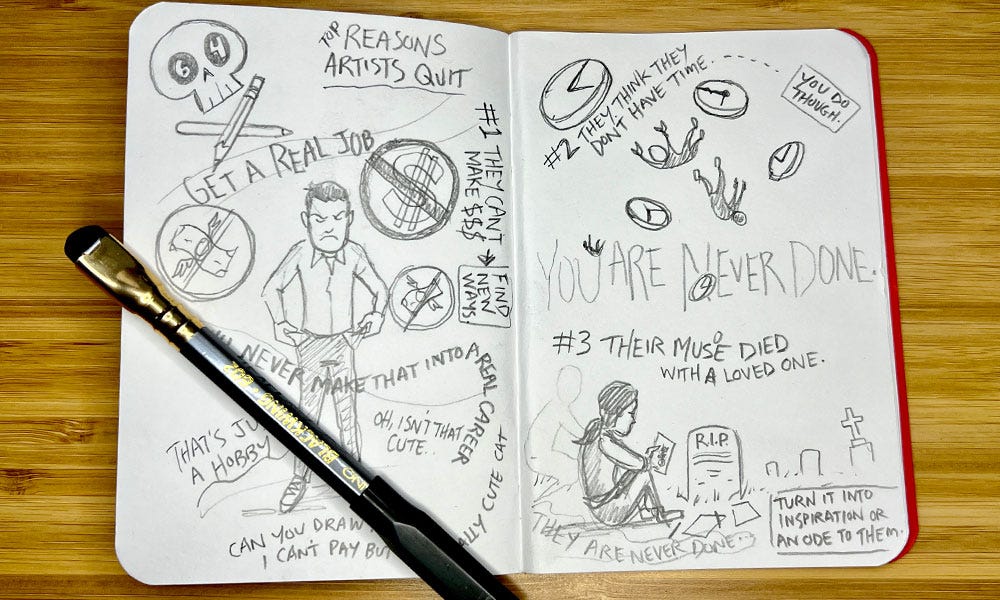 64
TOP REASONS
ARTISTS QUIT
GET A REAL JOB
#1 THEY CAN'T
MAKE $$$
FIND
NEW
WAYS.
NEVER MAKE THAT INTO A REAL CAREER
OH, ISN'T THAT
CUTE..
THAT'S JU
A HOBBY
CAN YOU DRAW
I CAN'T PAY BUT
CUTE CAT
BLACKWING
#2 THEY THINK THEY
DON'T HAVE TIME.
YOU DO
THOUGH.
YOU ARE NEVER DONE.
#3 THEIR MUSE DIED
WITH A LOVED ONE.
R.I.P.
TURN IT INTO
INSPIRATION OR
AN ODE TO THEM.
THEY ARE NEVER DONE...